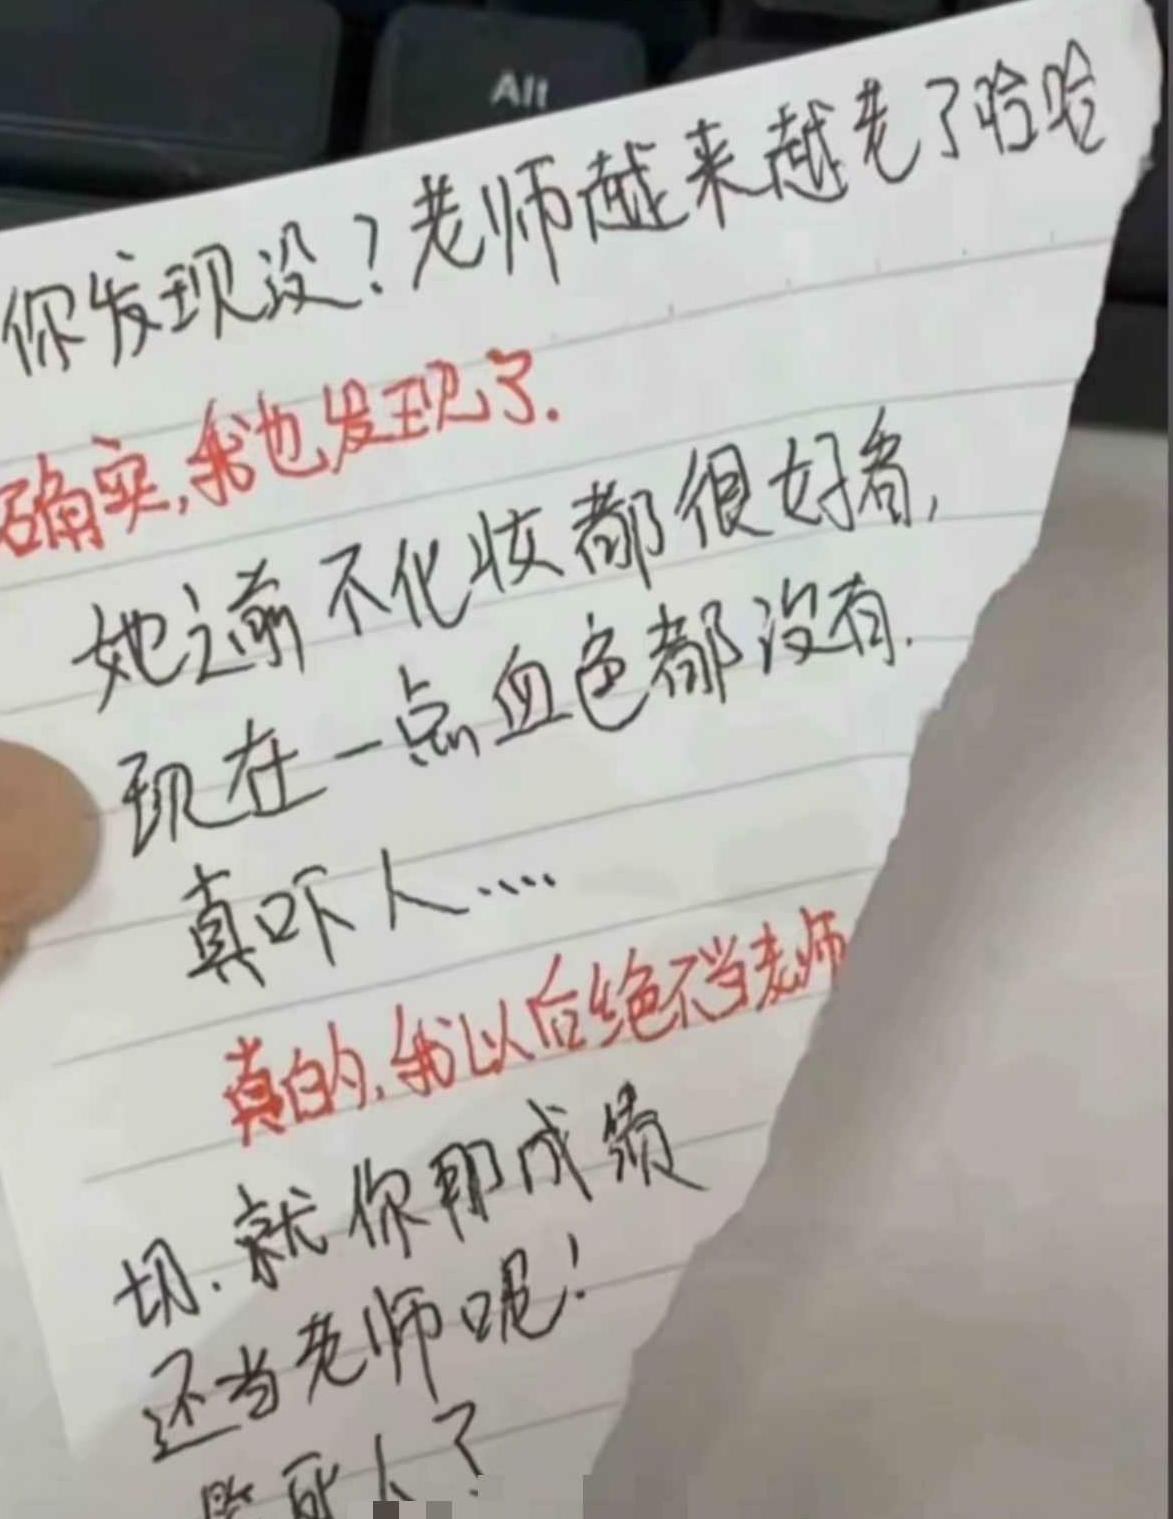 Alt
你发现没？老师越来越老了哈哈
确实，我也发现了.
她之前不化妆都很好看，
现在一点血色都没有.
真吓人....
真的，我以后绝不当老师
切.就你那成绩
还当老师呢！
死人了